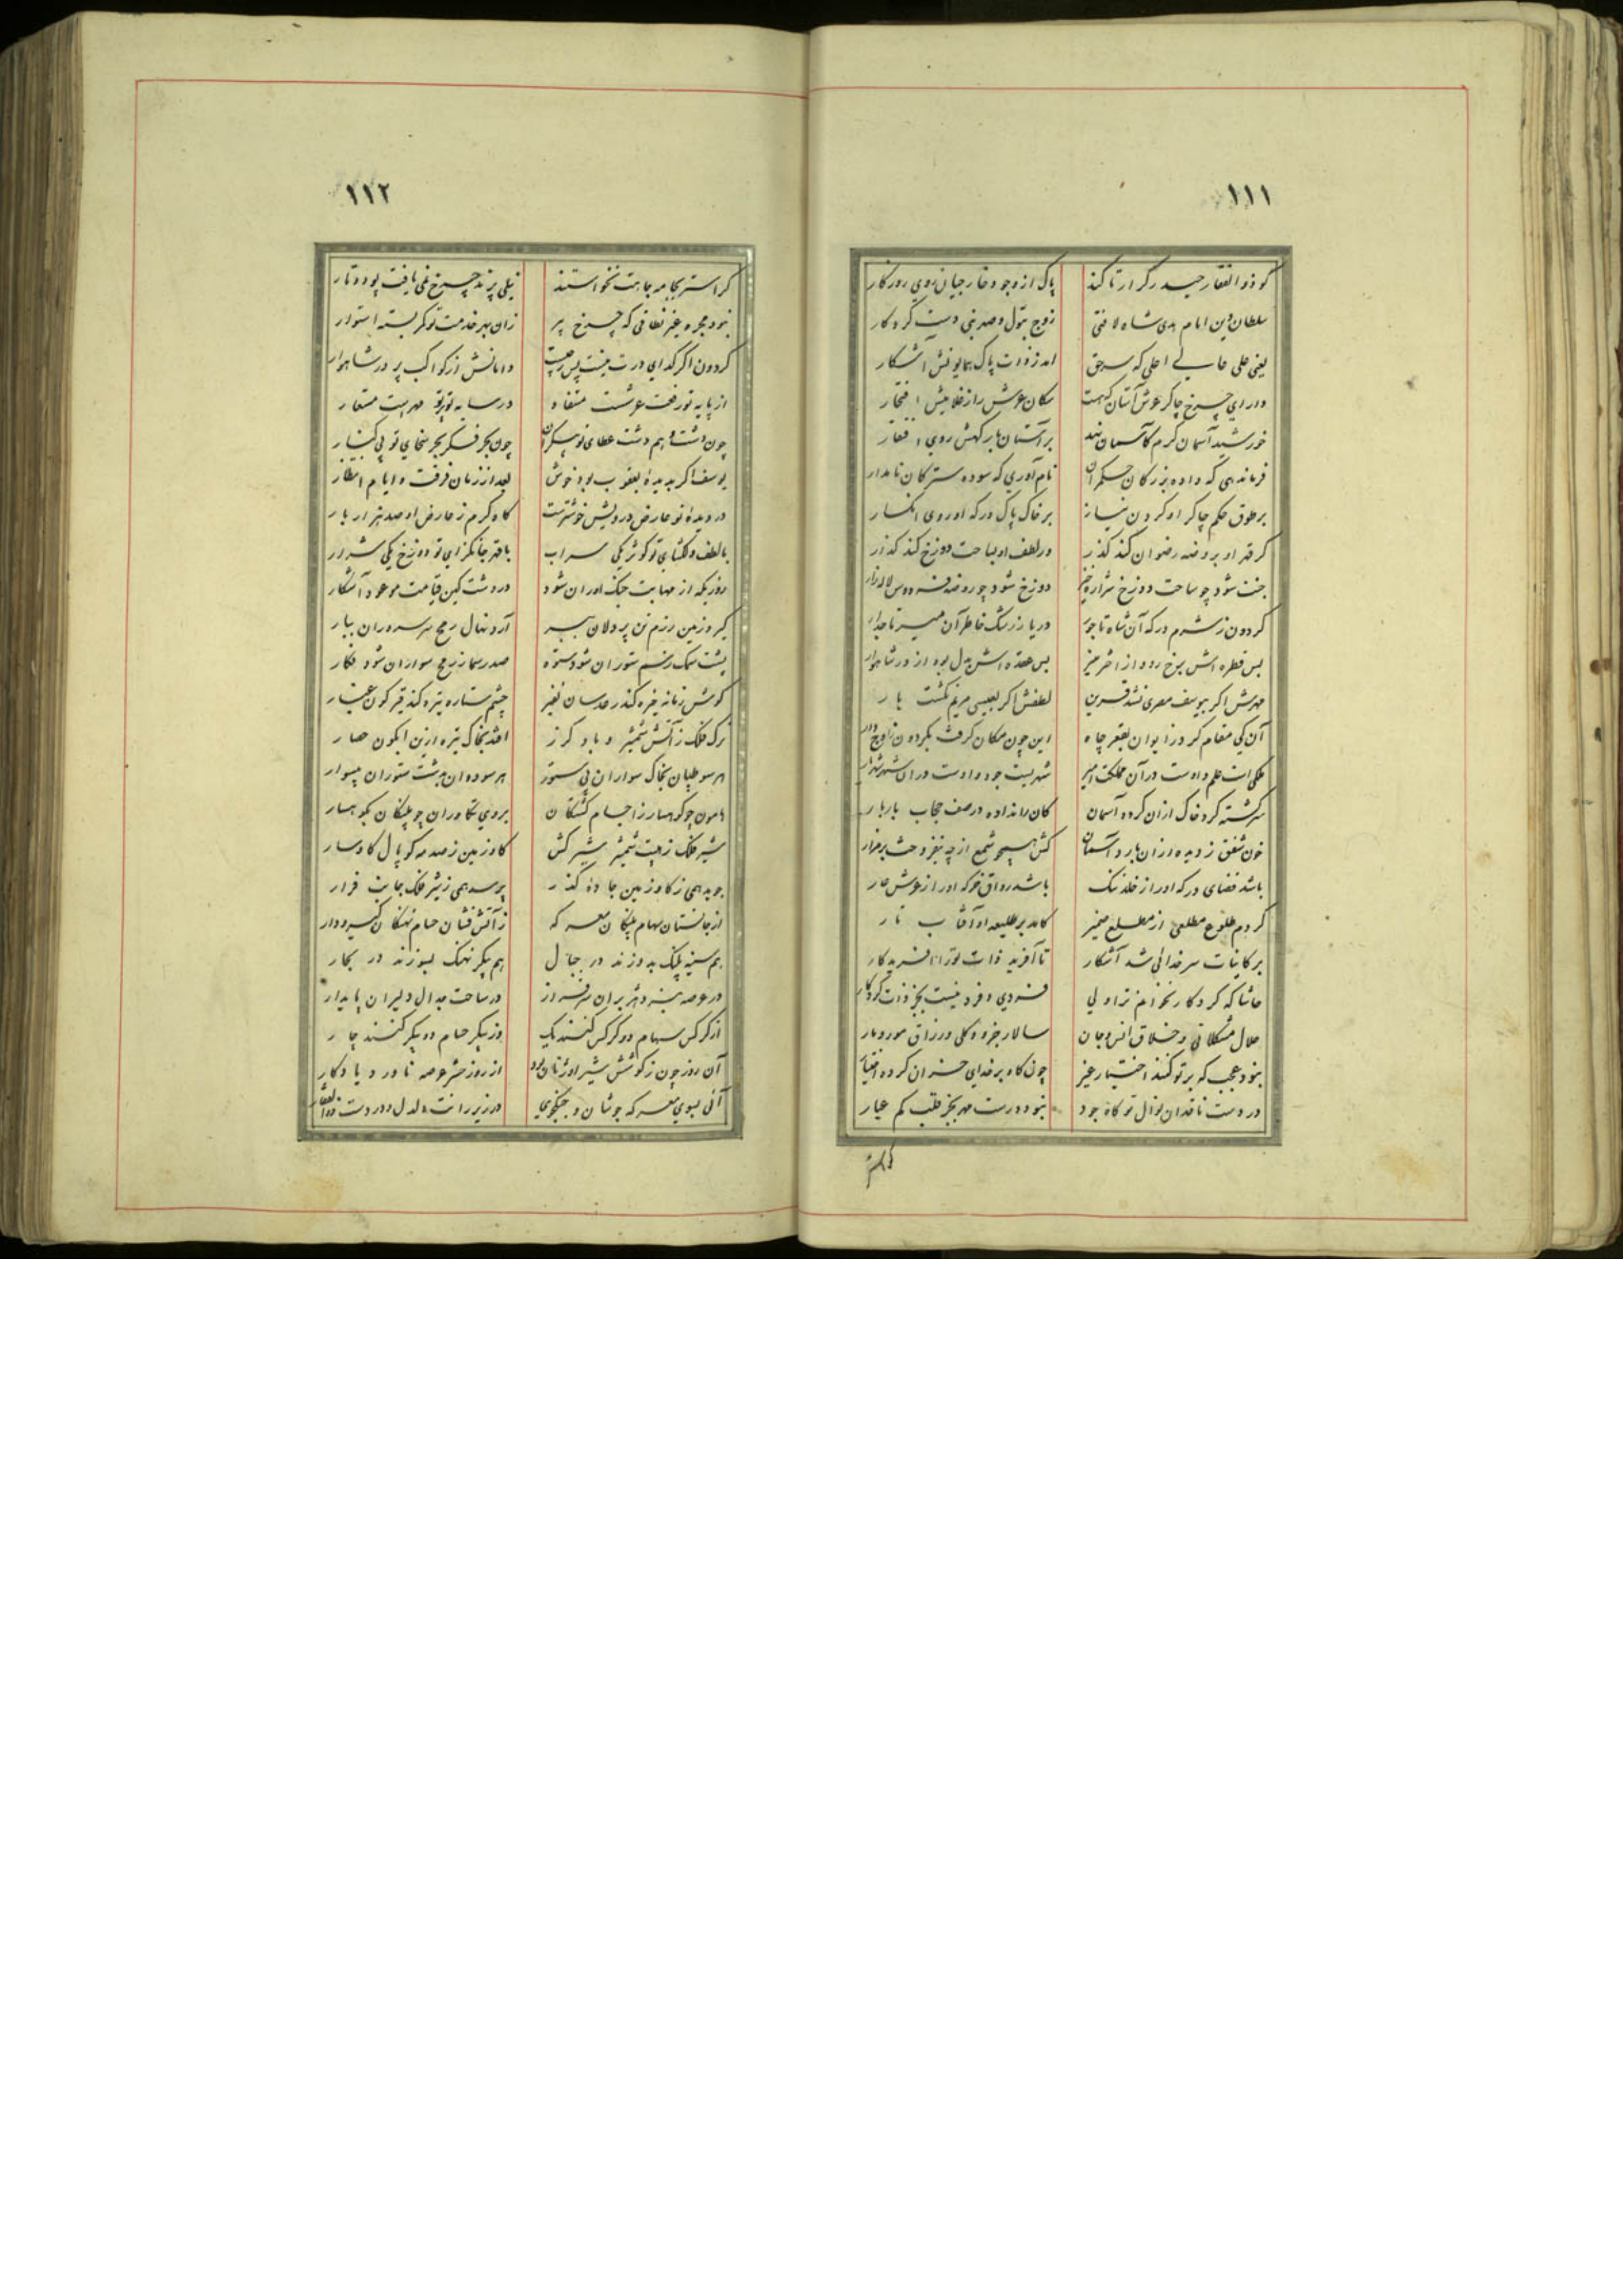 ۱۱۱
کو ذوالفقار حیدر کرار تا کند پاک از وجود خارجیان روی روزگار
سلطان دین امام هدی شاه لافتی زوج بتول و صهر نبی دست کردگار
یعنی علی عالی اعلی که سر حق آمد ز ذات پاک همایونش آشکار
دارای چرخ چاکر عرش آستان که هست سکان عرش را ز غلامیش افتخار
خورشید آسمان کرم کآسمان نهد بر آستان بارگهش روی افتقار
فرماندهی که داده بزرگان حکمران نام آوری که سوده سترکان نامدار
بر طوق حکم چاکر او گردن نیاز بر خاک پاک درگه او روی انکسار
گر قهر او بروضه رضوان کند گذر ور لطف او بساحت دوزخ کند گذار
جنت شود چو ساحت دوزخ شراره خیز دوزخ شود چو روضه فردوس لاله زار
گردون ز شرم درگه آن شاه تاجور دریا ز رشک خاطر آن میر تاجدار
بس قطره اش برخ رود از اختر منیر بس عقده اش بدل بود از در شاهوار
مهرش اگر بیوسف مصری نشد قرین لطفش اگر بعیسی مریم نگشت یار
آن کی مقام کرد ز ایوان بقعر چاه این چون مکان گرفت بگردون ز اوج دار
ملکی است علم و اوست در آن مملکت امیر شهریست جود و اوست در آن شهر شهریار
سرگشته گرد خاک از آن گردد آسمان کان را نداده در صف حجاب بار بار
خون شفق ز دیده از آن بارد آسمان کش همچو شمع از چه نیفروخت بر مزار
باشد فضای درگه او را ز خلد ننگ باشد رواق خرگه او را ز عرش عار
کردم طلوع مطلعی از مطلع ضمیر کامد بر طلیعه او آفتاب تار
بر کاینات سر خدائی شد آشکار تا آفرید ذات تو را آفریدگار
حاشا که کردگار نخوانم ترا ولی فردی و فرد نیست بجز ذات کردگار
حلال مشکلاتی و خلاق انس و جان سالار جزو و کلی و رزاق مور و مار
نبود عجب که بر تو کنند اختیار غیر چون گاو بر خدای خران کرده اختیار
در دست ناقدان نوال تو گاه جود نبود درست مهر بجز قلب کم عیار
۱۱۲
گر استر بجامه جاهت نخواستند نیلی پرند چرخ نمی یافت پود و تار
نبود مجره غیر نطاقی که چرخ پیر زان بهر خدمت تو کمر بسته استوار
گردون اگر گدای درت نیست پس ز چیست دامانش از کواکب پر در شاهوار
از پایه تو رفعت عرشست مستفاد در سایه تو پرتو مهریست مستعار
چون دشت وهم دشت عطای تو بیکران چون بحر فکر بحر سخای تو بی کنار
یوسف اگر بدیده یعقوب بود خوش بعد از زمان فرقت و ایام انتظار
در دیده تو عارض درویش خوشترست گاه کرم ز عارض او صد هزار بار
با لطف دلگشای تو کوثر یکی سراب با قهر جانگزای تو دوزخ یکی شرار
روزیکه از مهابت جنگ آوران شود در دشت کین قیامت موعود آشکار
گیرد زمین رزم تن پردلان ببر آرد نهال رمح سر سروران ببار
پشت سمک ز سم ستوران شود ستوه صدر سما ز رمح سواران شود فکار
گوش زمانه خیره کند رعدسان نفیر چشم ستاره تیره کند قیرگون غبار
ترک فلک ز آتش شمشیر و باد گرز افتد بخاک تیره ازین آبگون حصار
هر سو طپان بخاک سواران بی ستور هر سو دوان بدشت ستوران بیسوار
هامون چو کوهسار ز اجسام کشتگان بر وی تکاوران چو پلنگان بکوهسار
شیر فلک ز هیبت شمشیر شیرکش گاو زمین ز صدمه کوپال گاوسار
جوید همی ز گاو زمین جاده گذر پرسد همی ز شیر فلک جانب فرار
از جانستان سهام پلنگان معرکه ز آتش فشان حسام نهنگان گیر و دار
هم سینه پلنگ بدوزند در جبال هم پیکر نهنگ بسوزند در بحار
در عرصه ستیز هژبران سرفراز در ساحت جدال دلیران پایدار
از کرکس سهام دو کرکس کنند یک وز پیکر حسام دو پیکر کنند چار
آن روز چون ز کوشش شیر اوژنان بود از روز حشر عرصه ناورد یادگار
آئی بسوی معرکه جوشان و جنگجوی در زیر رانت دلدل و در دست ذوالفقار